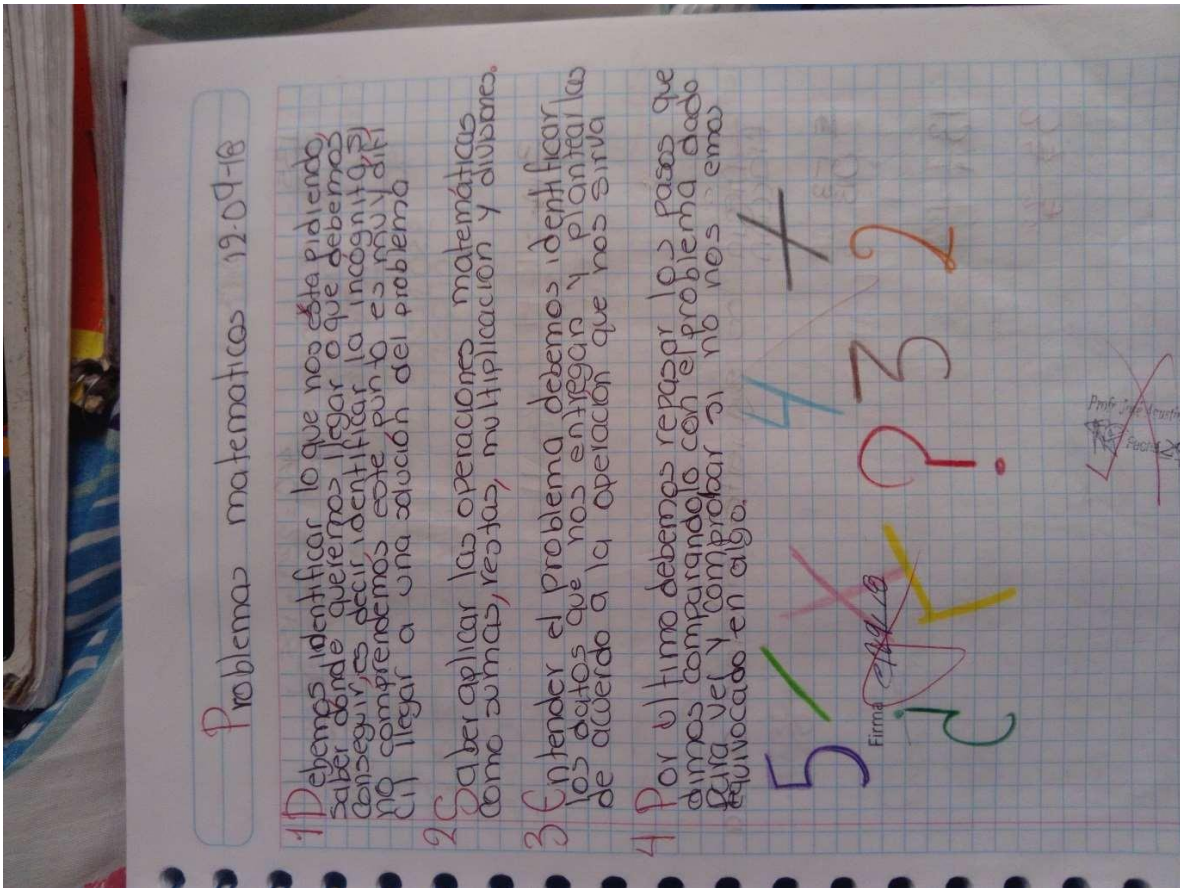 Problemas matematicos 19-09-18
1 Debemos identificar lo que nos esta pidiendo,
saber dónde queremos llegar o que debemos
conseguir, es decir identificar la incógnita, si
no comprendemos este punto es muy difi
cil llegar a una solución del problema
2 Saber aplicar las operaciones matemáticas
como sumas, restas, multiplicación y divisiones.
3 Entender el problema debemos identificar
los datos que nos entregan y plantear los
de acuerdo a la operación que nos sirva
4 Por ultimo debemos repasar los pasos que
dimos comparandolo con el problema dado
para ver y comprobar si no nos emos
equivocado en algo.
5 / X 4 +
Firma
¿ ? 3 2